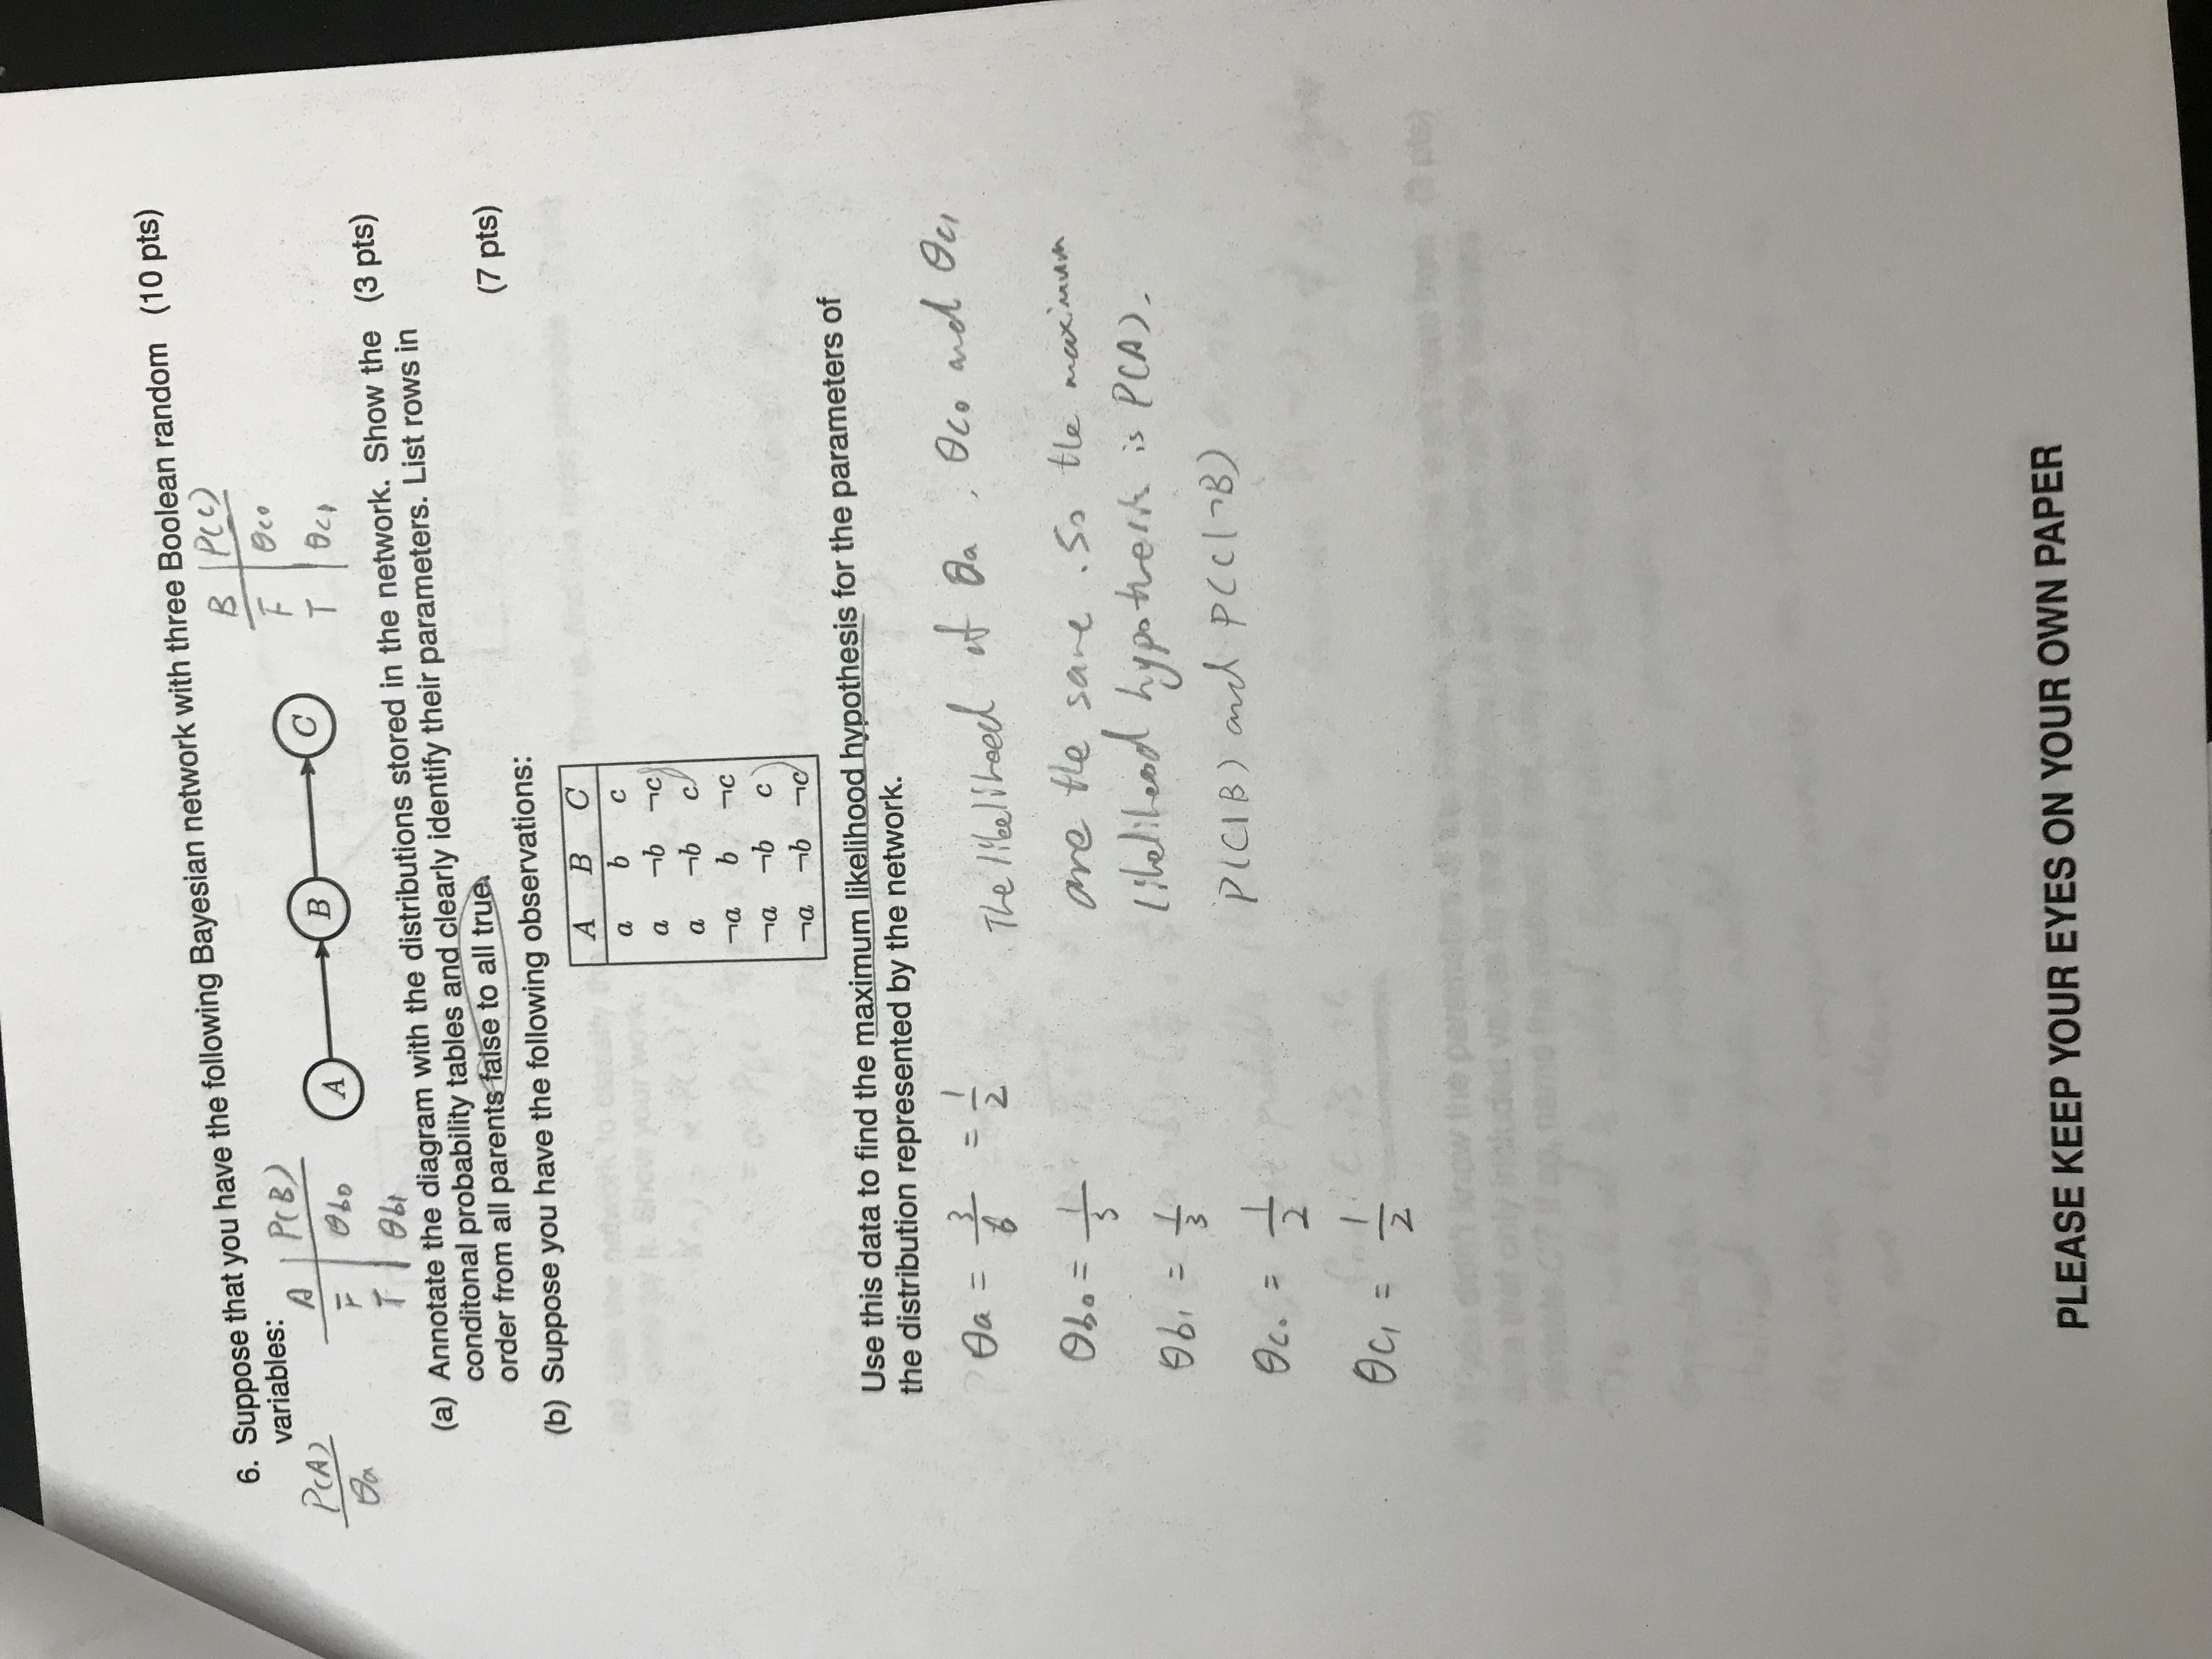 6. Suppose that you have the following Bayesian network with three Boolean random (10 pts)
variables:
P(A)
θa
A P(B)
F θb0
T θb1
A B C
B P(C)
F θc0
T θc1
(a) Annotate the diagram with the distributions stored in the network. Show the (3 pts)
conditonal probability tables and clearly identify their parameters. List rows in
order from all parents false to all true.
(b) Suppose you have the following observations: (7 pts)
A B C
a b c
a ¬b ¬c
a ¬b c
¬a b ¬c
¬a ¬b c
¬a ¬b ¬c
Use this data to find the maximum likelihood hypothesis for the parameters of
the distribution represented by the network.
θa = 3/6 = 1/2
θb0 = 1/3
θb1 = 1/3
θc0 = 1/2
θc1 = 1/2
The likelihood of θa, θc0 and θc1
are the same. So the maximum
likelihood hypothesis is P(A).
P(C|B) and P(C|¬B)
PLEASE KEEP YOUR EYES ON YOUR OWN PAPER